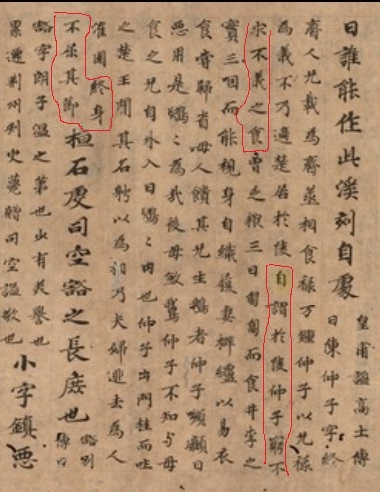 曰誰能作此溪刻自處
皇甫謐高士傳
曰陳仲子字終
齊人兄載為齊丞相食祿万鍾仲子以兄祿
為義不乃適楚居於陵自謂於陵仲子窮不
求不義之食曾乏粮三日匍匐而食井李之
實三咽而能視身自織履妻擗纑以易衣
食嘗歸省母人饋其兄生鵝者仲子嚬顣曰
惡用是鶃〻為哉後母敏鵞仲子不知与母
食之兄自外入曰鶃〻肉也仲子出門桂而哇
之楚王聞其名聘以為相乃夫婦逃去為人
灌園終身
不屈其節
桓石虔司空豁之長庶也
豁別
傳曰
豁字朗子溫之弟也少有美譽也
累遷荊州刾史薨贈司空謚敬也
小字鎮惡